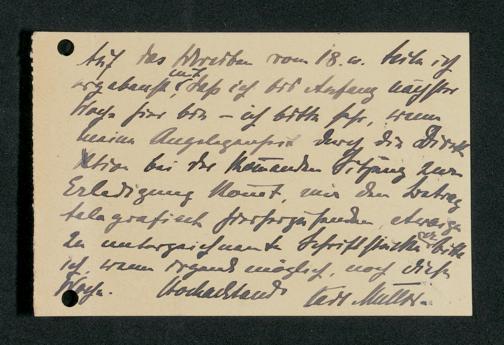 Auf das Schreiben vom 18. ds. teile ich
ergebenst mit, daß ich bis Anfang nächster
Woche hier bin – ich bitte sehr, wenn
meine Angelegenheit durch die Direk-
tion bei der kommenden Sitzung zur
Erledigung kommt, mir den Vertrag
telegrafisch hierherzusenden, etwaige
zu unterzeichnende Schriftstücke bitte
ich, wenn irgend möglich, noch diese
Woche. Hochachtend Carl Müller.